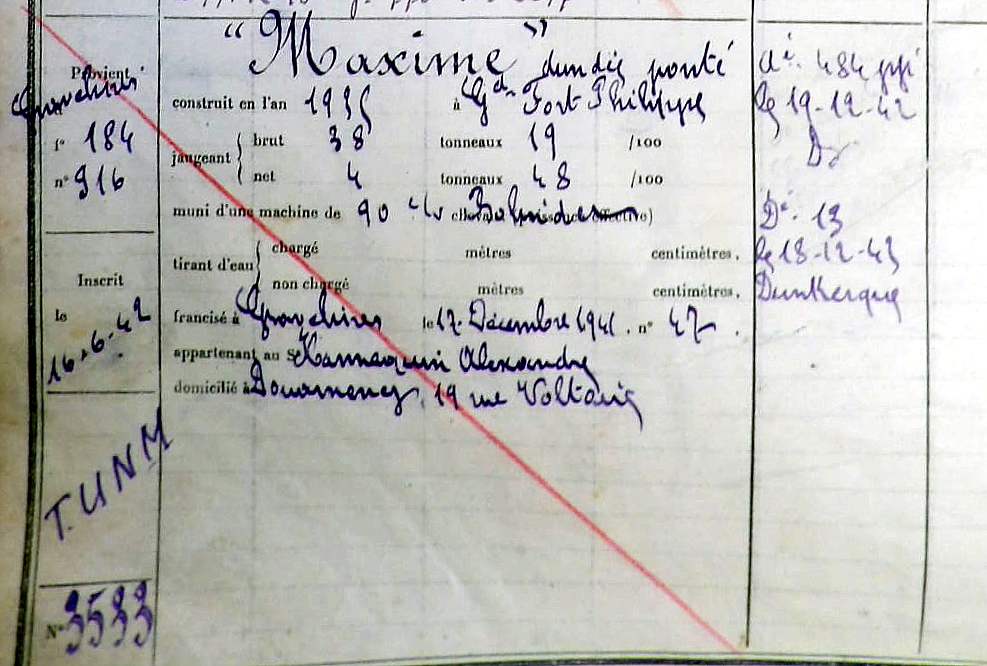 Provient
de Gravelines
f° 184
n° 916
Inscrit
le
16-6-42
T.U.N.M
N° 3533
"Maxime" dundée ponté
construit en l'an 1935 à Gd Fort Philippe
jaugeant { brut 38 tonneaux 19 /100
net 4 tonneaux 48 /100
muni d'une machine de 90 cv Bolnides
tirant d'eau { chargé mètres centimètres.
non chargé mètres centimètres.
francisé à Gravelines le 17 Décembre 1941. n° 47.
appartenant au S Hannequin Alexandre
domicilié à Douarnenez, 19 rue Voltaire
484
le 19-12-42
Dz
Dt. 13
le 18-12-43
Dunkerque